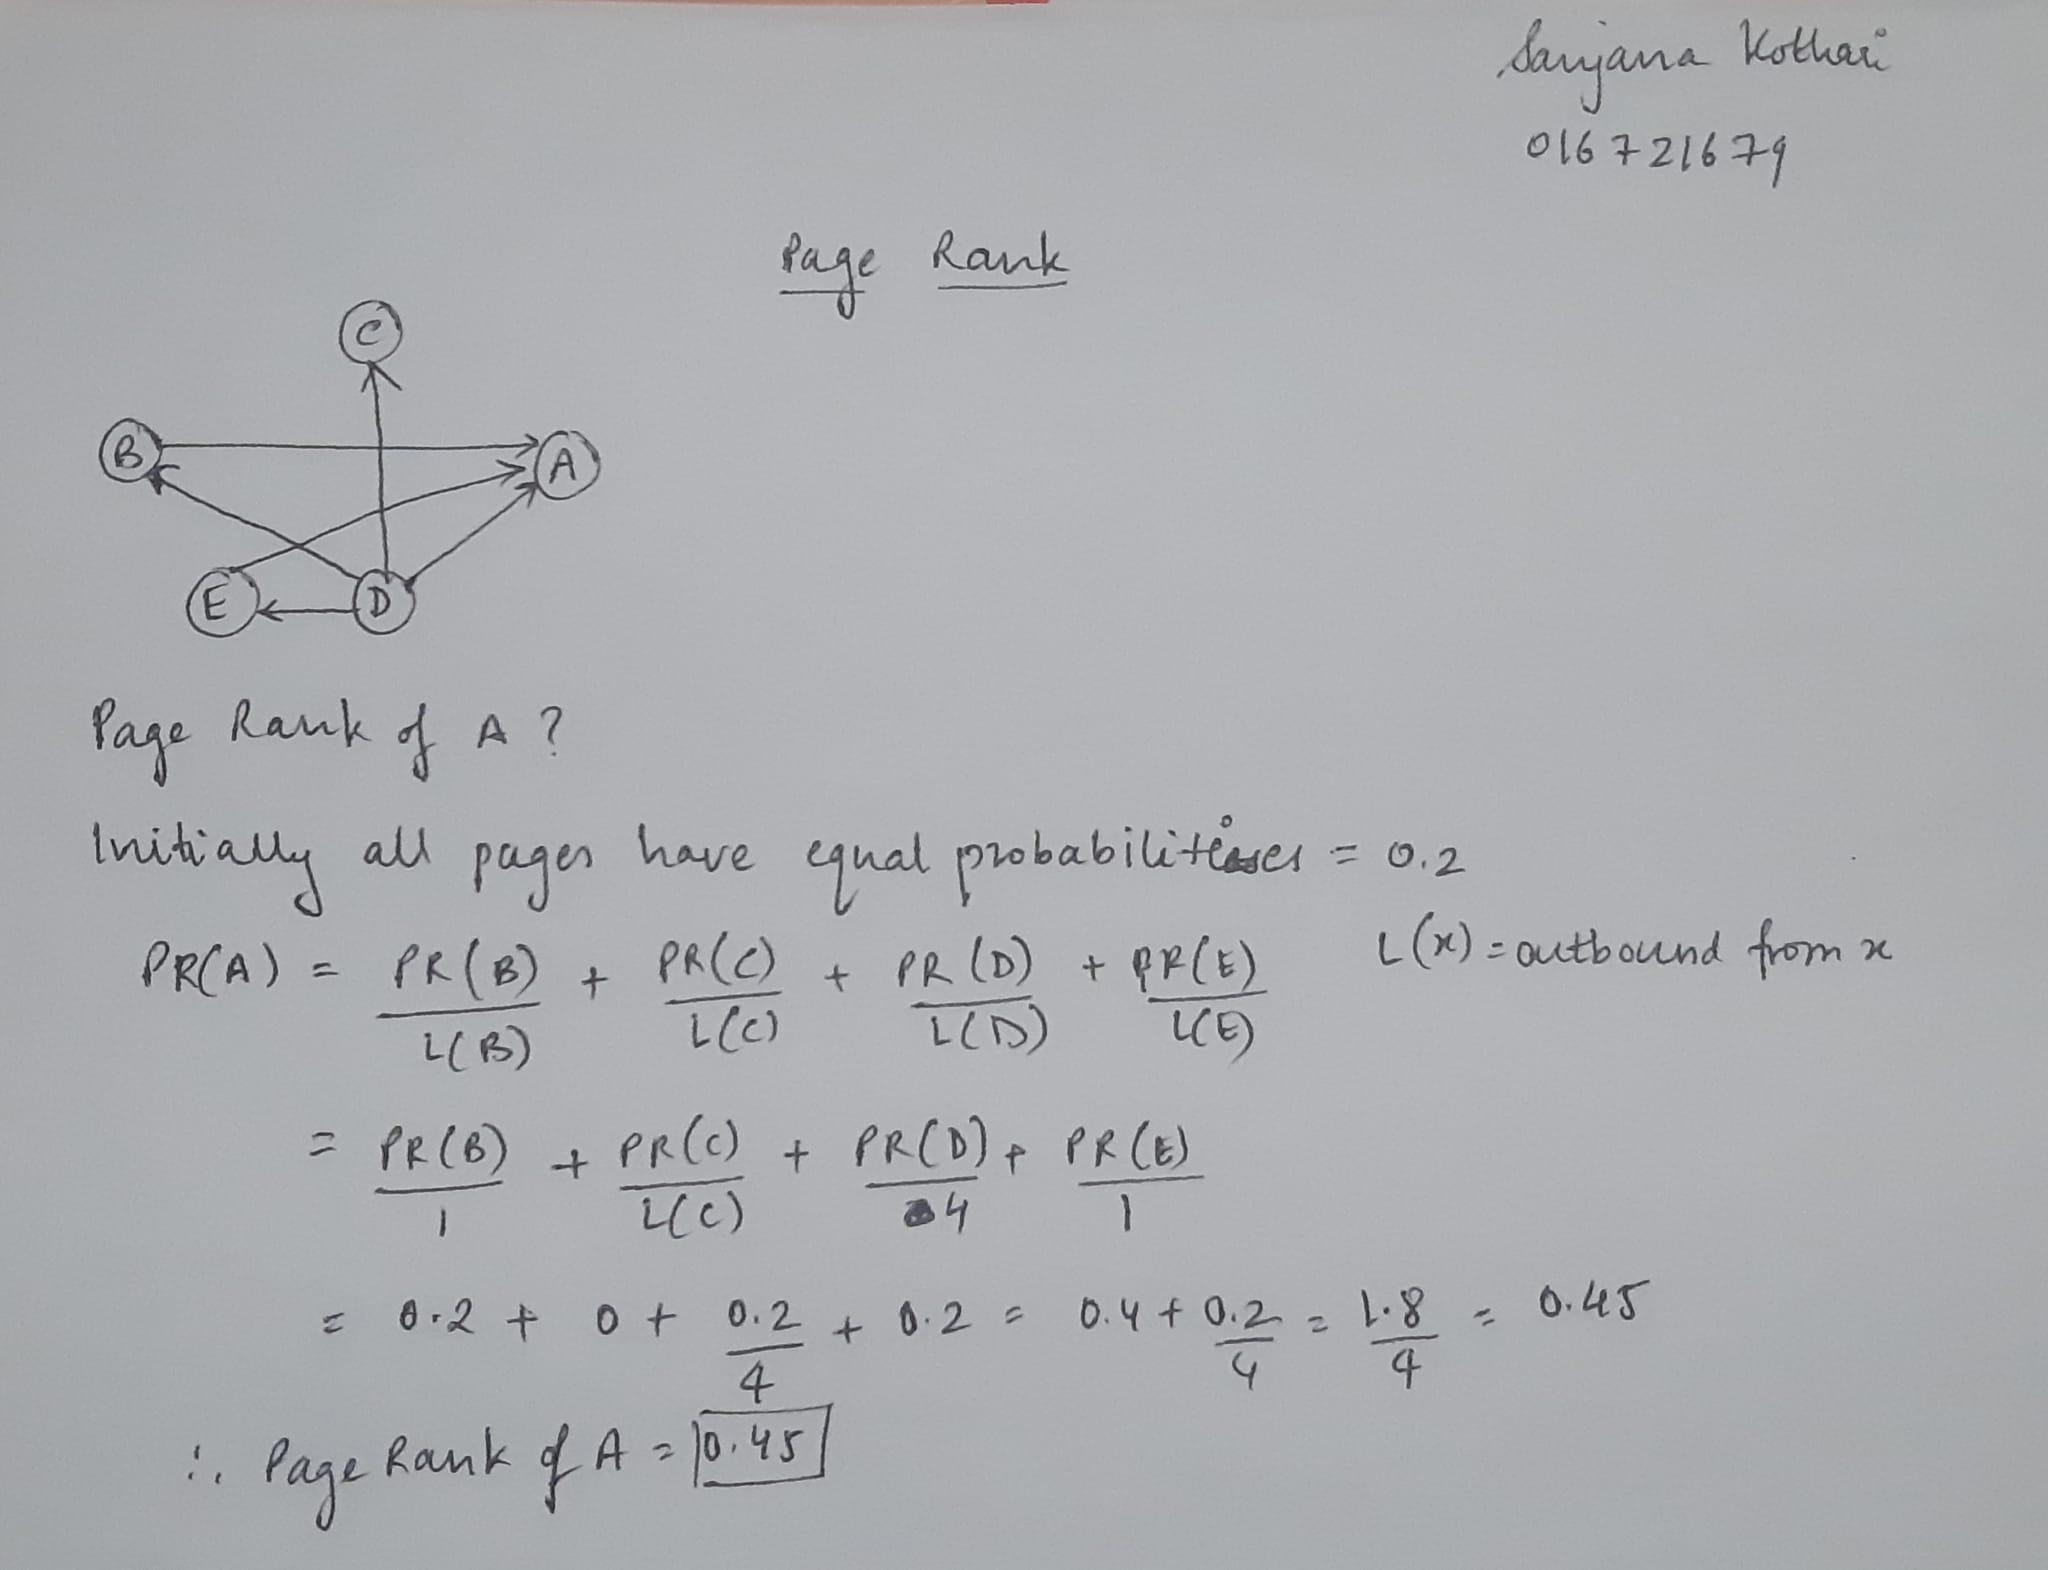 Sanjana Kothari
016721679
Page Rank
C
B
A
E
D
Page Rank of A ?
Initially all pages have equal = 0.2
PR(A) = PR(B)/L(B) + PR(C)/L(C) + PR(D)/L(D) + PR(E)/L(E) L(x) = outbound from x
= PR(B)/1 + PR(C)/L(C) + PR(D)/4 + PR(E)/1
= 0.2 + 0 + 0.2/4 + 0.2 = 0.4 + 0.2/4 = 1.8/4 = 0.45
∴ Page Rank of A = 0.45